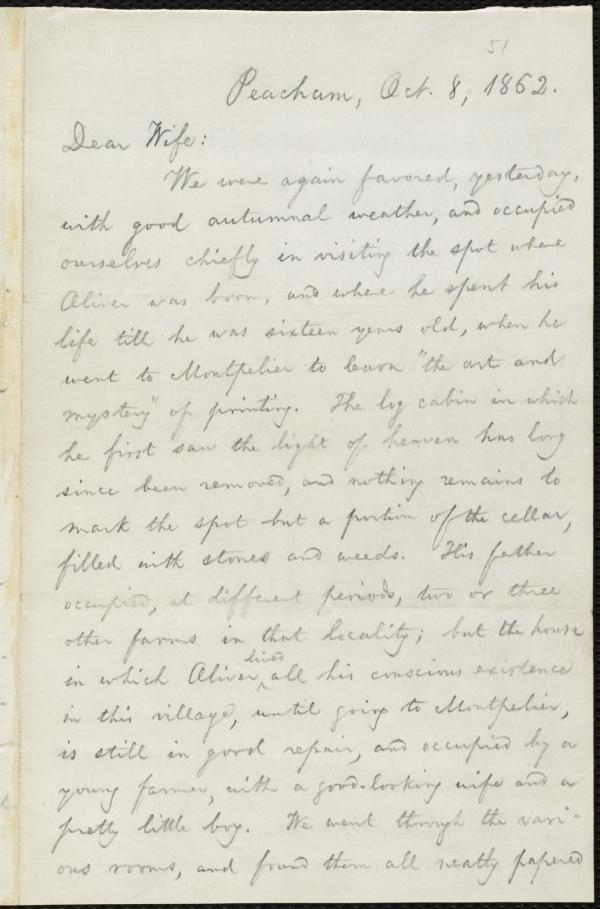 51
Peacham, Oct. 8, 1862.
Dear Wife:
We were again favored, yesterday,
with good autumnal weather, and occupied
ourselves chiefly in visiting the spot where
Oliver was born, and where he spent his
life till he was sixteen years old, when he
went to Montpelier to learn "the art and
mystery" of printing. The log cabin in which
he first saw the light of heaven has long
since been removed, and nothing remains to
mark the spot but a portion of the cellar,
filled with stones and weeds. His father
occupied, at different periods, two or three
other farms in that locality; but the house
in which Oliver lived all his conscious existence
in this village, until going to Montpelier,
is still in good repair, and occupied by a
young farmer, with a good-looking wife and a
pretty little boy. We went through the vari-
ous rooms, and found them all neatly papered